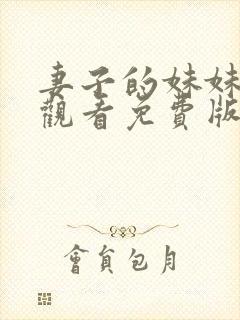 妻子的妹妹
觀看免費版
會員包月